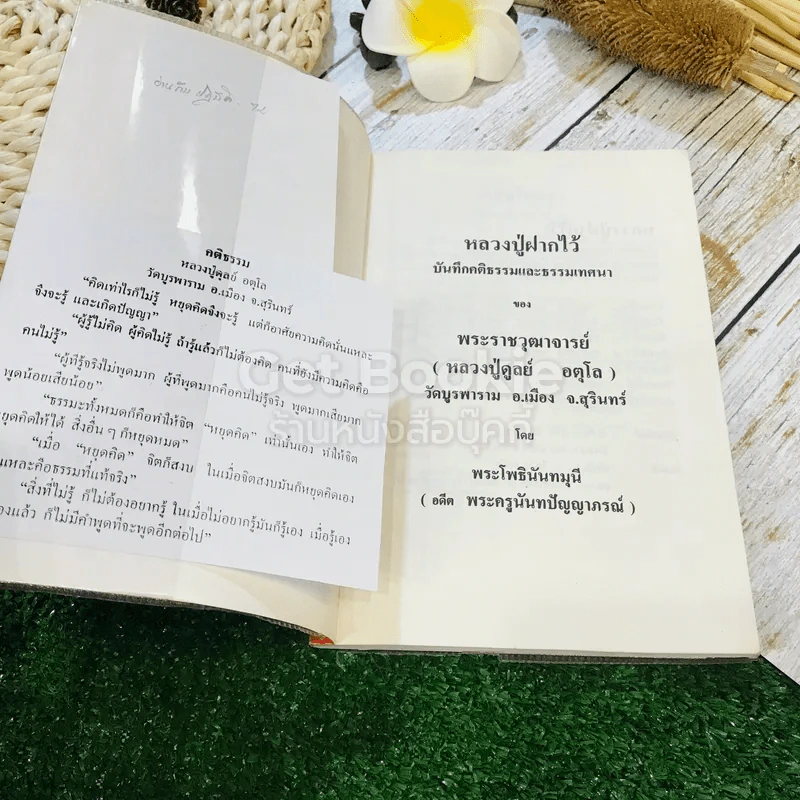 คติธรรม
หลวงปู่ดูลย์ อตุโล
วัดบูรพาราม อ.เมือง จ.สุรินทร์
“คิดเท่าไรก็ไม่รู้ หยุดคิดจึงจะรู้ แต่ก็อาศัยความคิดนั่นแหละ
จึงจะรู้ และเกิดปัญญา”
“ผู้รู้ไม่คิด ผู้คิดไม่รู้ ถ้ารู้แล้วก็ไม่ต้องคิด คนที่ยังมีความคิดคือ
คนไม่รู้”
“ผู้ที่รู้จริงไม่พูดมาก ผู้ที่พูดมากคือคนไม่รู้จริง พูดมากเสียมาก
พูดน้อยเสียน้อย”
“ธรรมะทั้งหมดก็คือทำให้จิต “หยุดคิด” เท่านั้นเอง ทำให้จิต
หยุดคิดให้ได้ สิ่งอื่นๆ ก็หยุดหมด”
“เมื่อ “หยุดคิด” จิตก็สงบ ในเมื่อจิตสงบมันก็หยุดคิดเอง
แหละคือธรรมที่แท้จริง”
“สิ่งที่ไม่รู้ ก็ไม่ต้องอยากรู้ ในเมื่อไม่อยากรู้มันก็รู้เอง เมื่อรู้เอง
แล้ว ก็ไม่มีคำพูดที่จะพูดอีกต่อไป”
หลวงปู่ฝากไว้
บันทึกคติธรรมและธรรมเทศนา
ของ
พระราชวุฒาจารย์
( หลวงปู่ดูลย์ อตุโล )
วัดบูรพาราม อ.เมือง จ.สุรินทร์
โดย
พระโพธินันทมุนี
( อดีต พระครูนันทปัญญาภรณ์ )
Get Bookie
ร้านหนังสือบุ๊คกี้